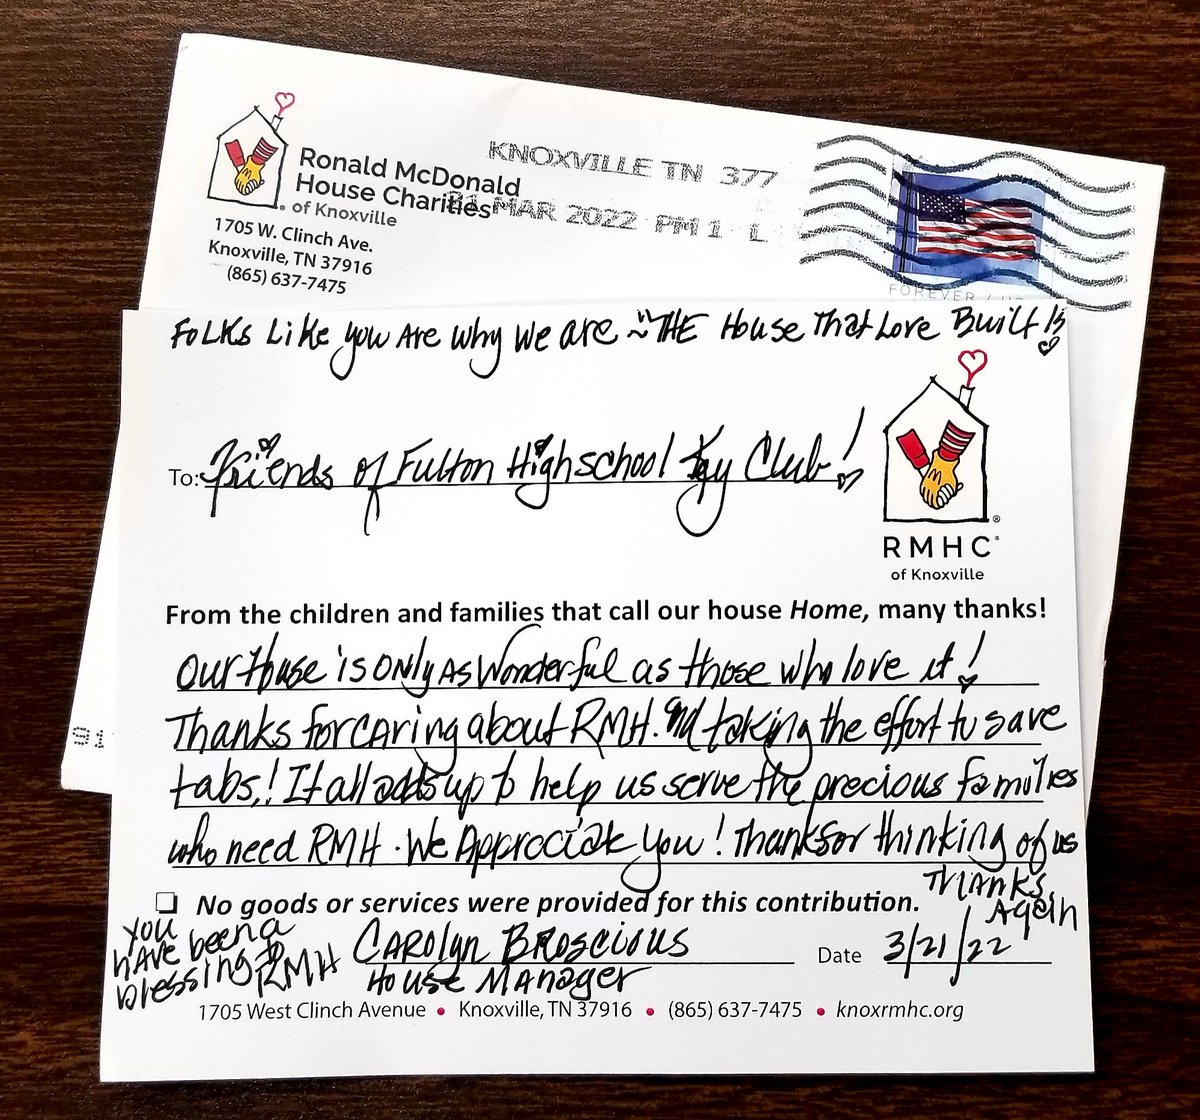 Ronald McDonald
House Charities
of Knoxville
1705 W. Clinch Ave.
Knoxville, TN 37916
(865) 637-7475
KNOXVILLE TN 377
21 MAR 2022 PM 1 L
FOREVER / US
FOLKS Like you Are why we are ~ "THE House That Love Built!"
To: Friends of Fulton Highschool Key Club!
RMHC®
of Knoxville
From the children and families that call our house Home, many thanks!
Our House is only As Wonderful as those who love it!
Thanks for caring about RMH. and taking the effort to save
tabs,! It all adds up to help us serve the precious families
who need RMH. We Appreciate you! Thanks for thinking of us
Thanks
Again
No goods or services were provided for this contribution.
You
have been a
blessing to
RMH
Carolyn Broscious
House Manager
Date 3/21/22
1705 West Clinch Avenue • Knoxville, TN 37916 • (865) 637-7475 • knoxrmhc.org
91